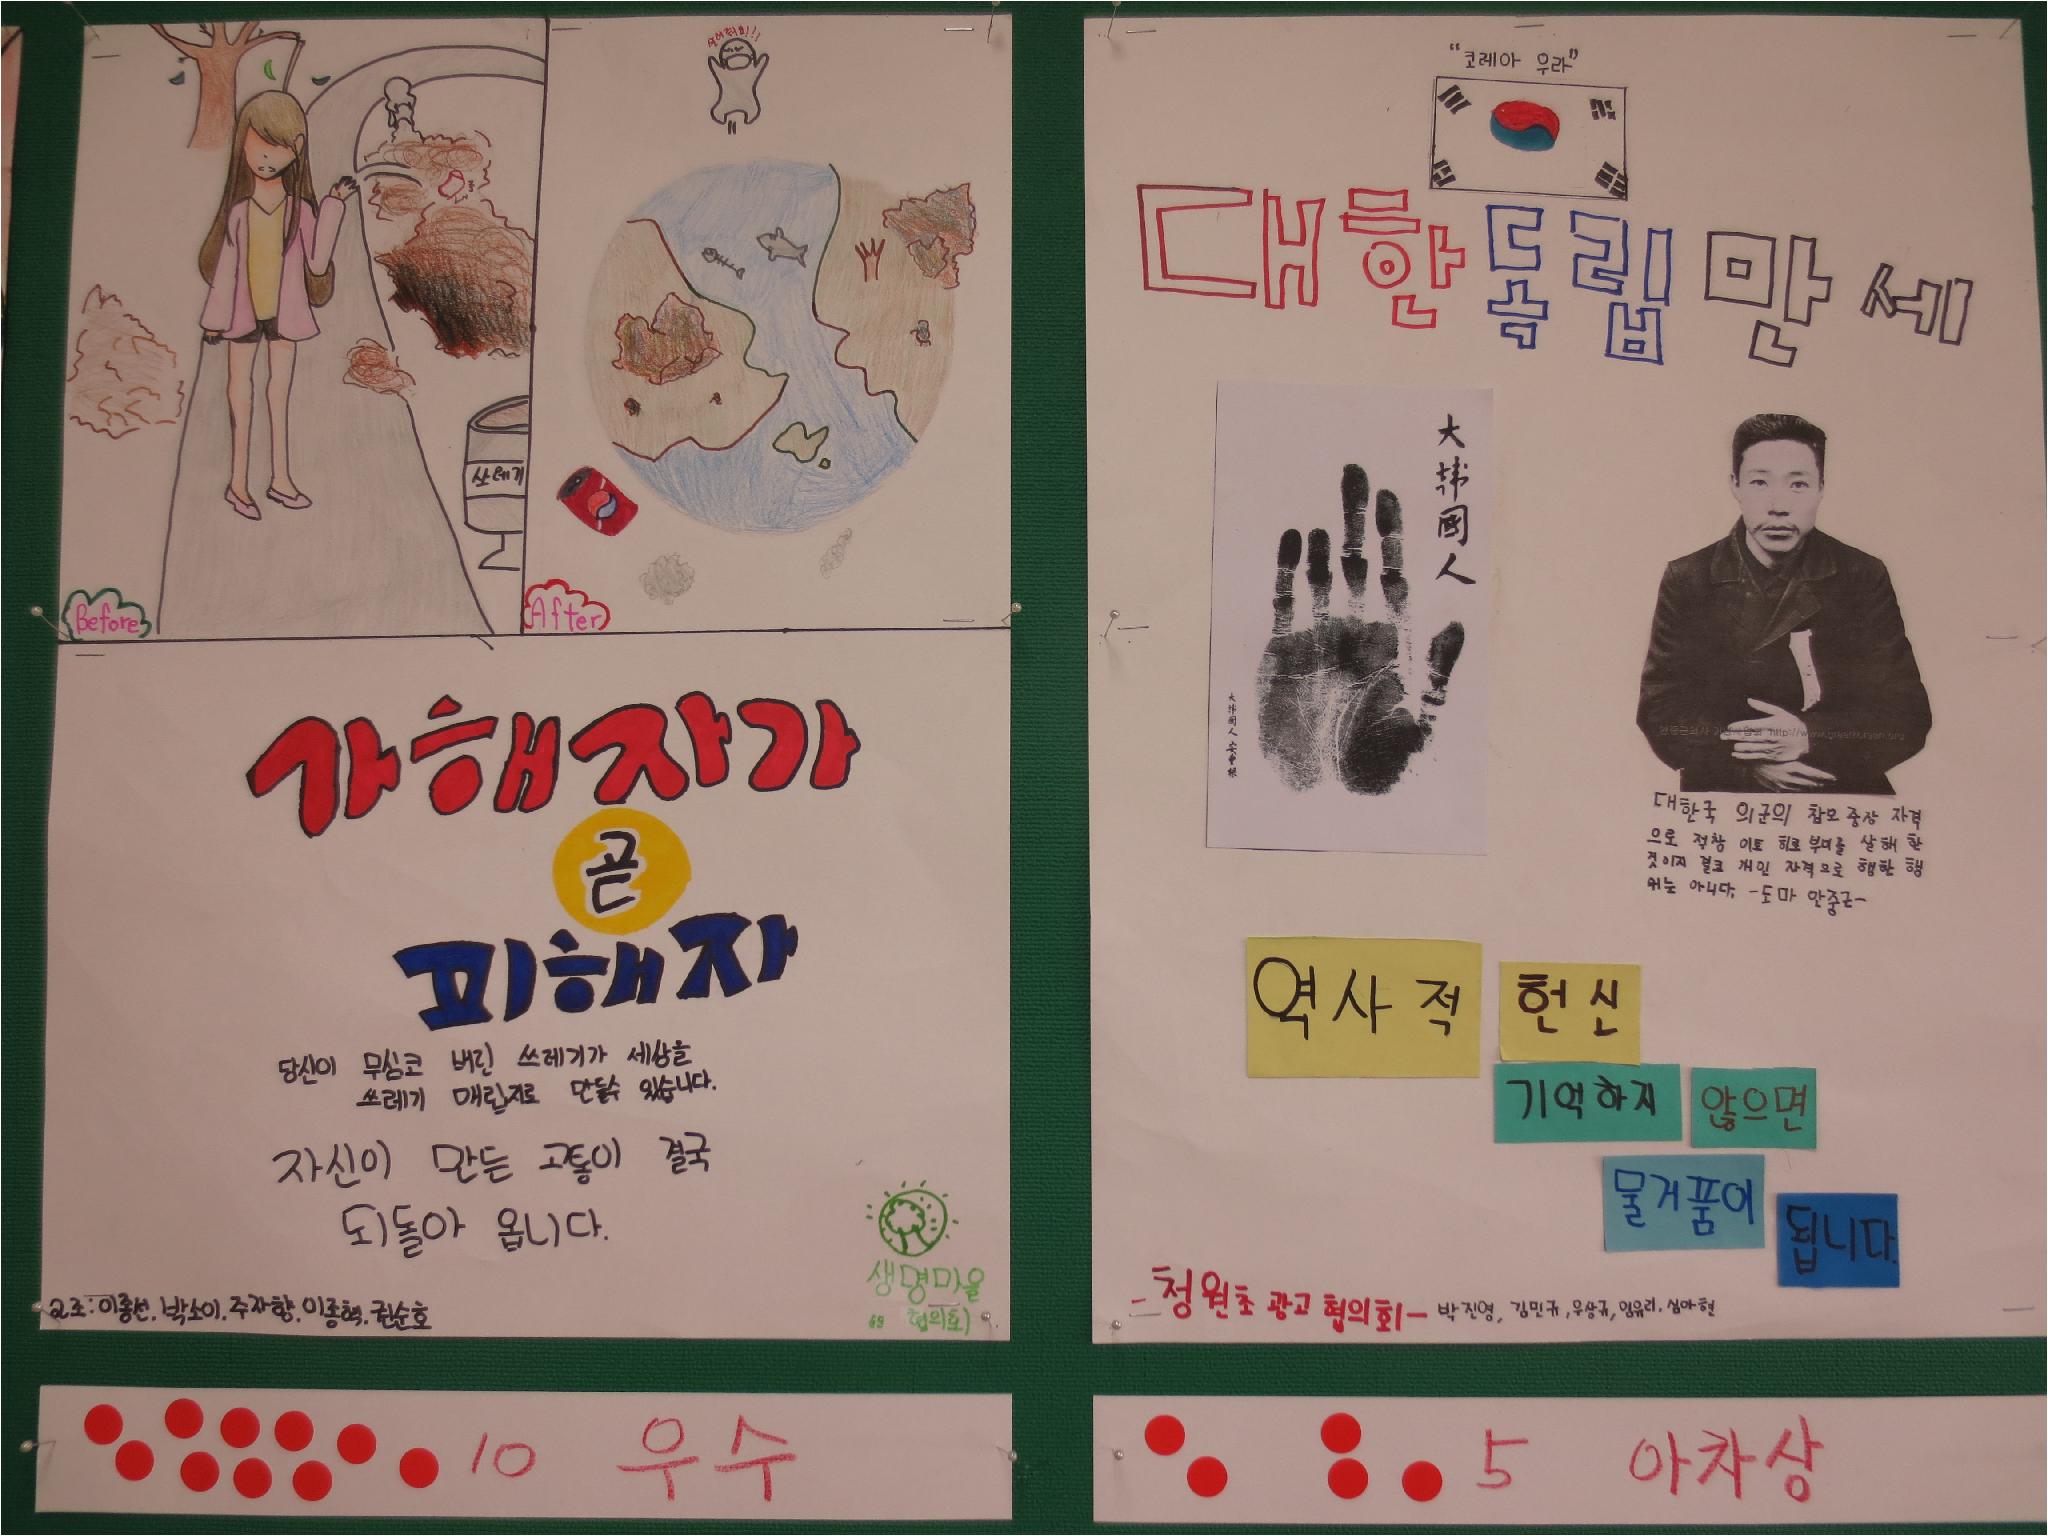 살려줘!!!
쓰레기
Before
After
가해자가
곧
피해자
당신이 무심코 버린 쓰레기가 세상을
쓰레기 매립지로 만들수 있습니다.
자신이 만든 고통이 결국
되돌아 옵니다.
생명마을
협의회
2조:이종선, 박소이, 주자향, 이종혁, 권순호
10 우수
"코레아 우라"
대한독립만세
大韓國人
大韓國人 安重根
http://www.greatkorean.org
대한국 의군의 참모중장 자격
으로 적장 이토 히로부미를 살해 한
것이지 결코 개인 자격으로 행한 행
위는 아니다. -도마 안중근-
역사적 헌신
기억하지 않으면
물거품이
됩니다.
-청원초 광고 협의회- 박진영, 김민규, 우상규, 임유리, 심아현
5 아차상